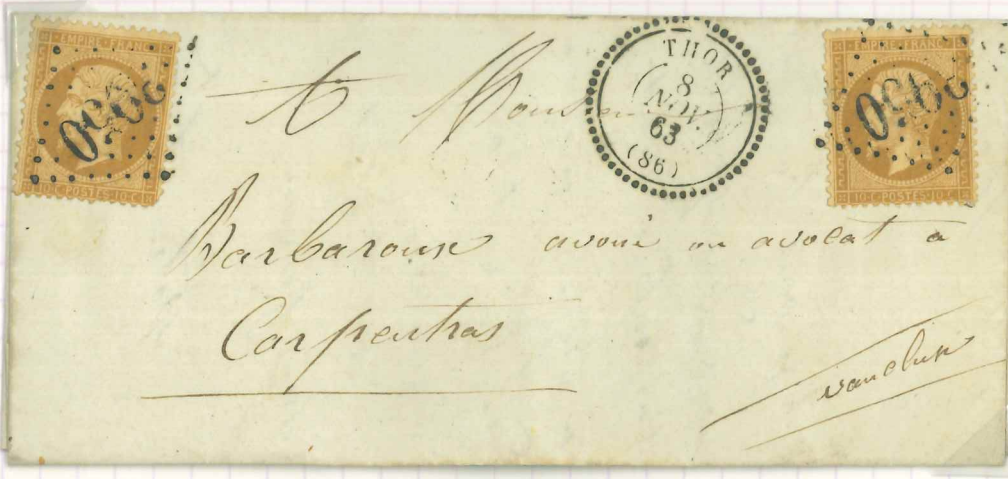 EMPIRE FRANC
10 C POSTES 10 C
THOR
8
NOV.
63
(86)
EMPIRE FRANC
10 C POSTES 10 C
A Monsieur
Barbaroux avoué ou avocat a
Carpentras
vaucluse